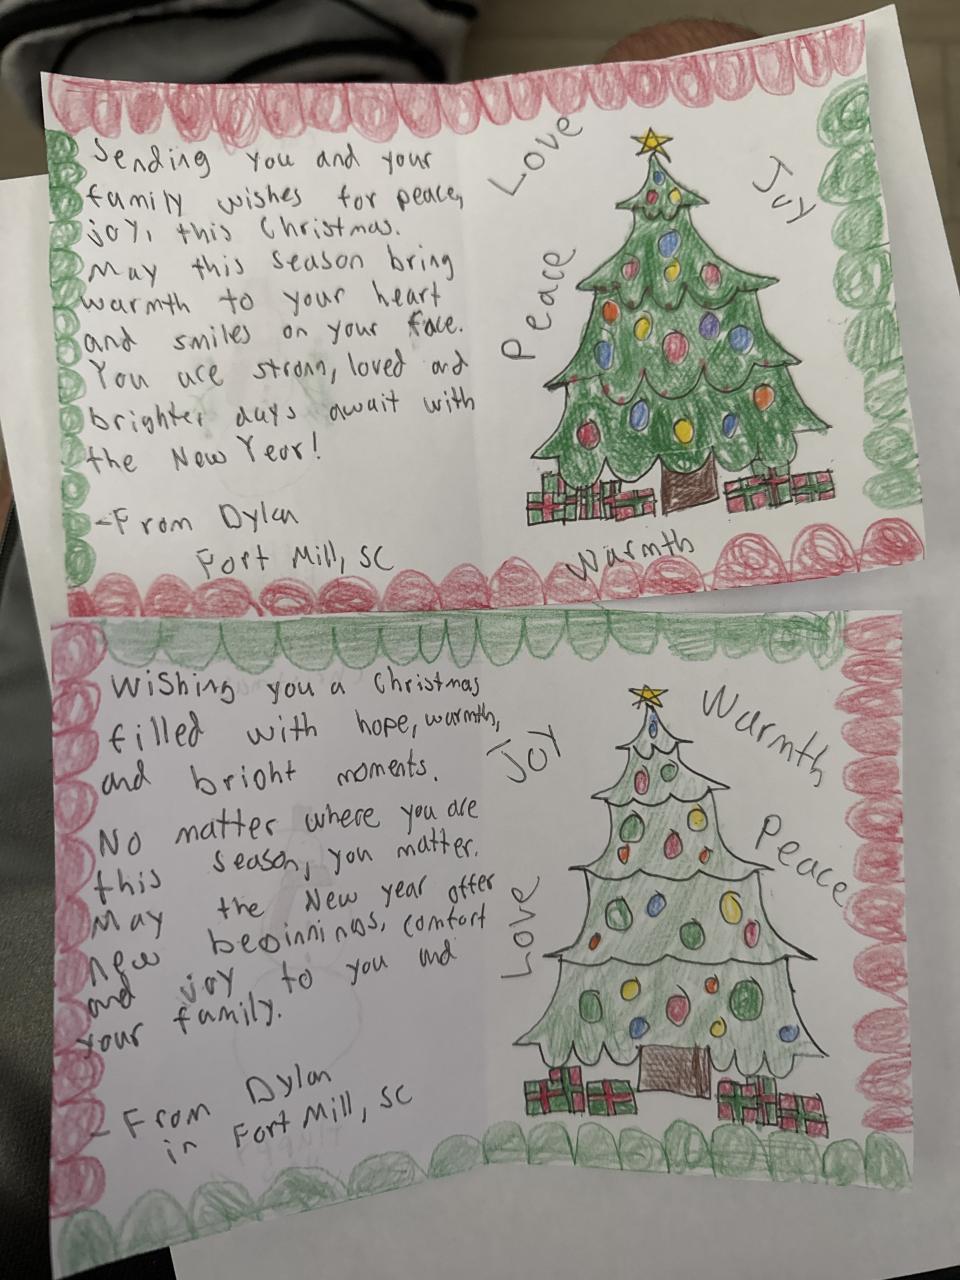 Sending you and your
family wishes for peace,
joy, this Christmas.
May this season bring
warmth to your heart
and smiles on your face.
You are strong, loved and
brighter days await with
the New Year!
-From Dylan
Fort Mill, SC
Love
Joy
Peace
Warmth
Wishing you a Christmas
filled with hope, warmth,
and bright moments.
No matter where you are
this season, you matter.
May the New year offer
new beginnings, comfort
and joy to you and
your family.
- From Dylan
in Fort Mill, SC
Joy
Warmth
Peace
Love